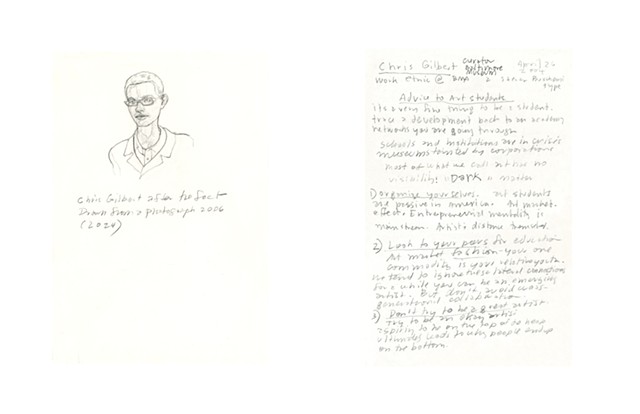 Chris Gilbert after the fact
Drawn from a photograph 2006
(2024)
Chris Gilbert curator Baltimore Museum April 26 2004
work ethic @ BMA
Advice to Art students
its a very fine thing to be a student.
trace a development back to an academy
network you are going through
schools and institutions are in crisis
museums towards corporations
most of what we call art has no
visibility! Dark matter
1) Organize yourselves. Art students
are passive in america. Art market
effect. Entrepreneurial mentality is
mainstream. Artist
2) Look to your peers for education
Art market fashion - your one
commodity is your relative youth.
we tend to ignore these lateral connections
for a while you can be an emerging
artist. But don't avoid cross-
generational collaboration
3) Don't try to be a great artist.
Try to be an okay artist
aspiring to be on the top of a heap
ultimately leads to why people end up
on the bottom.